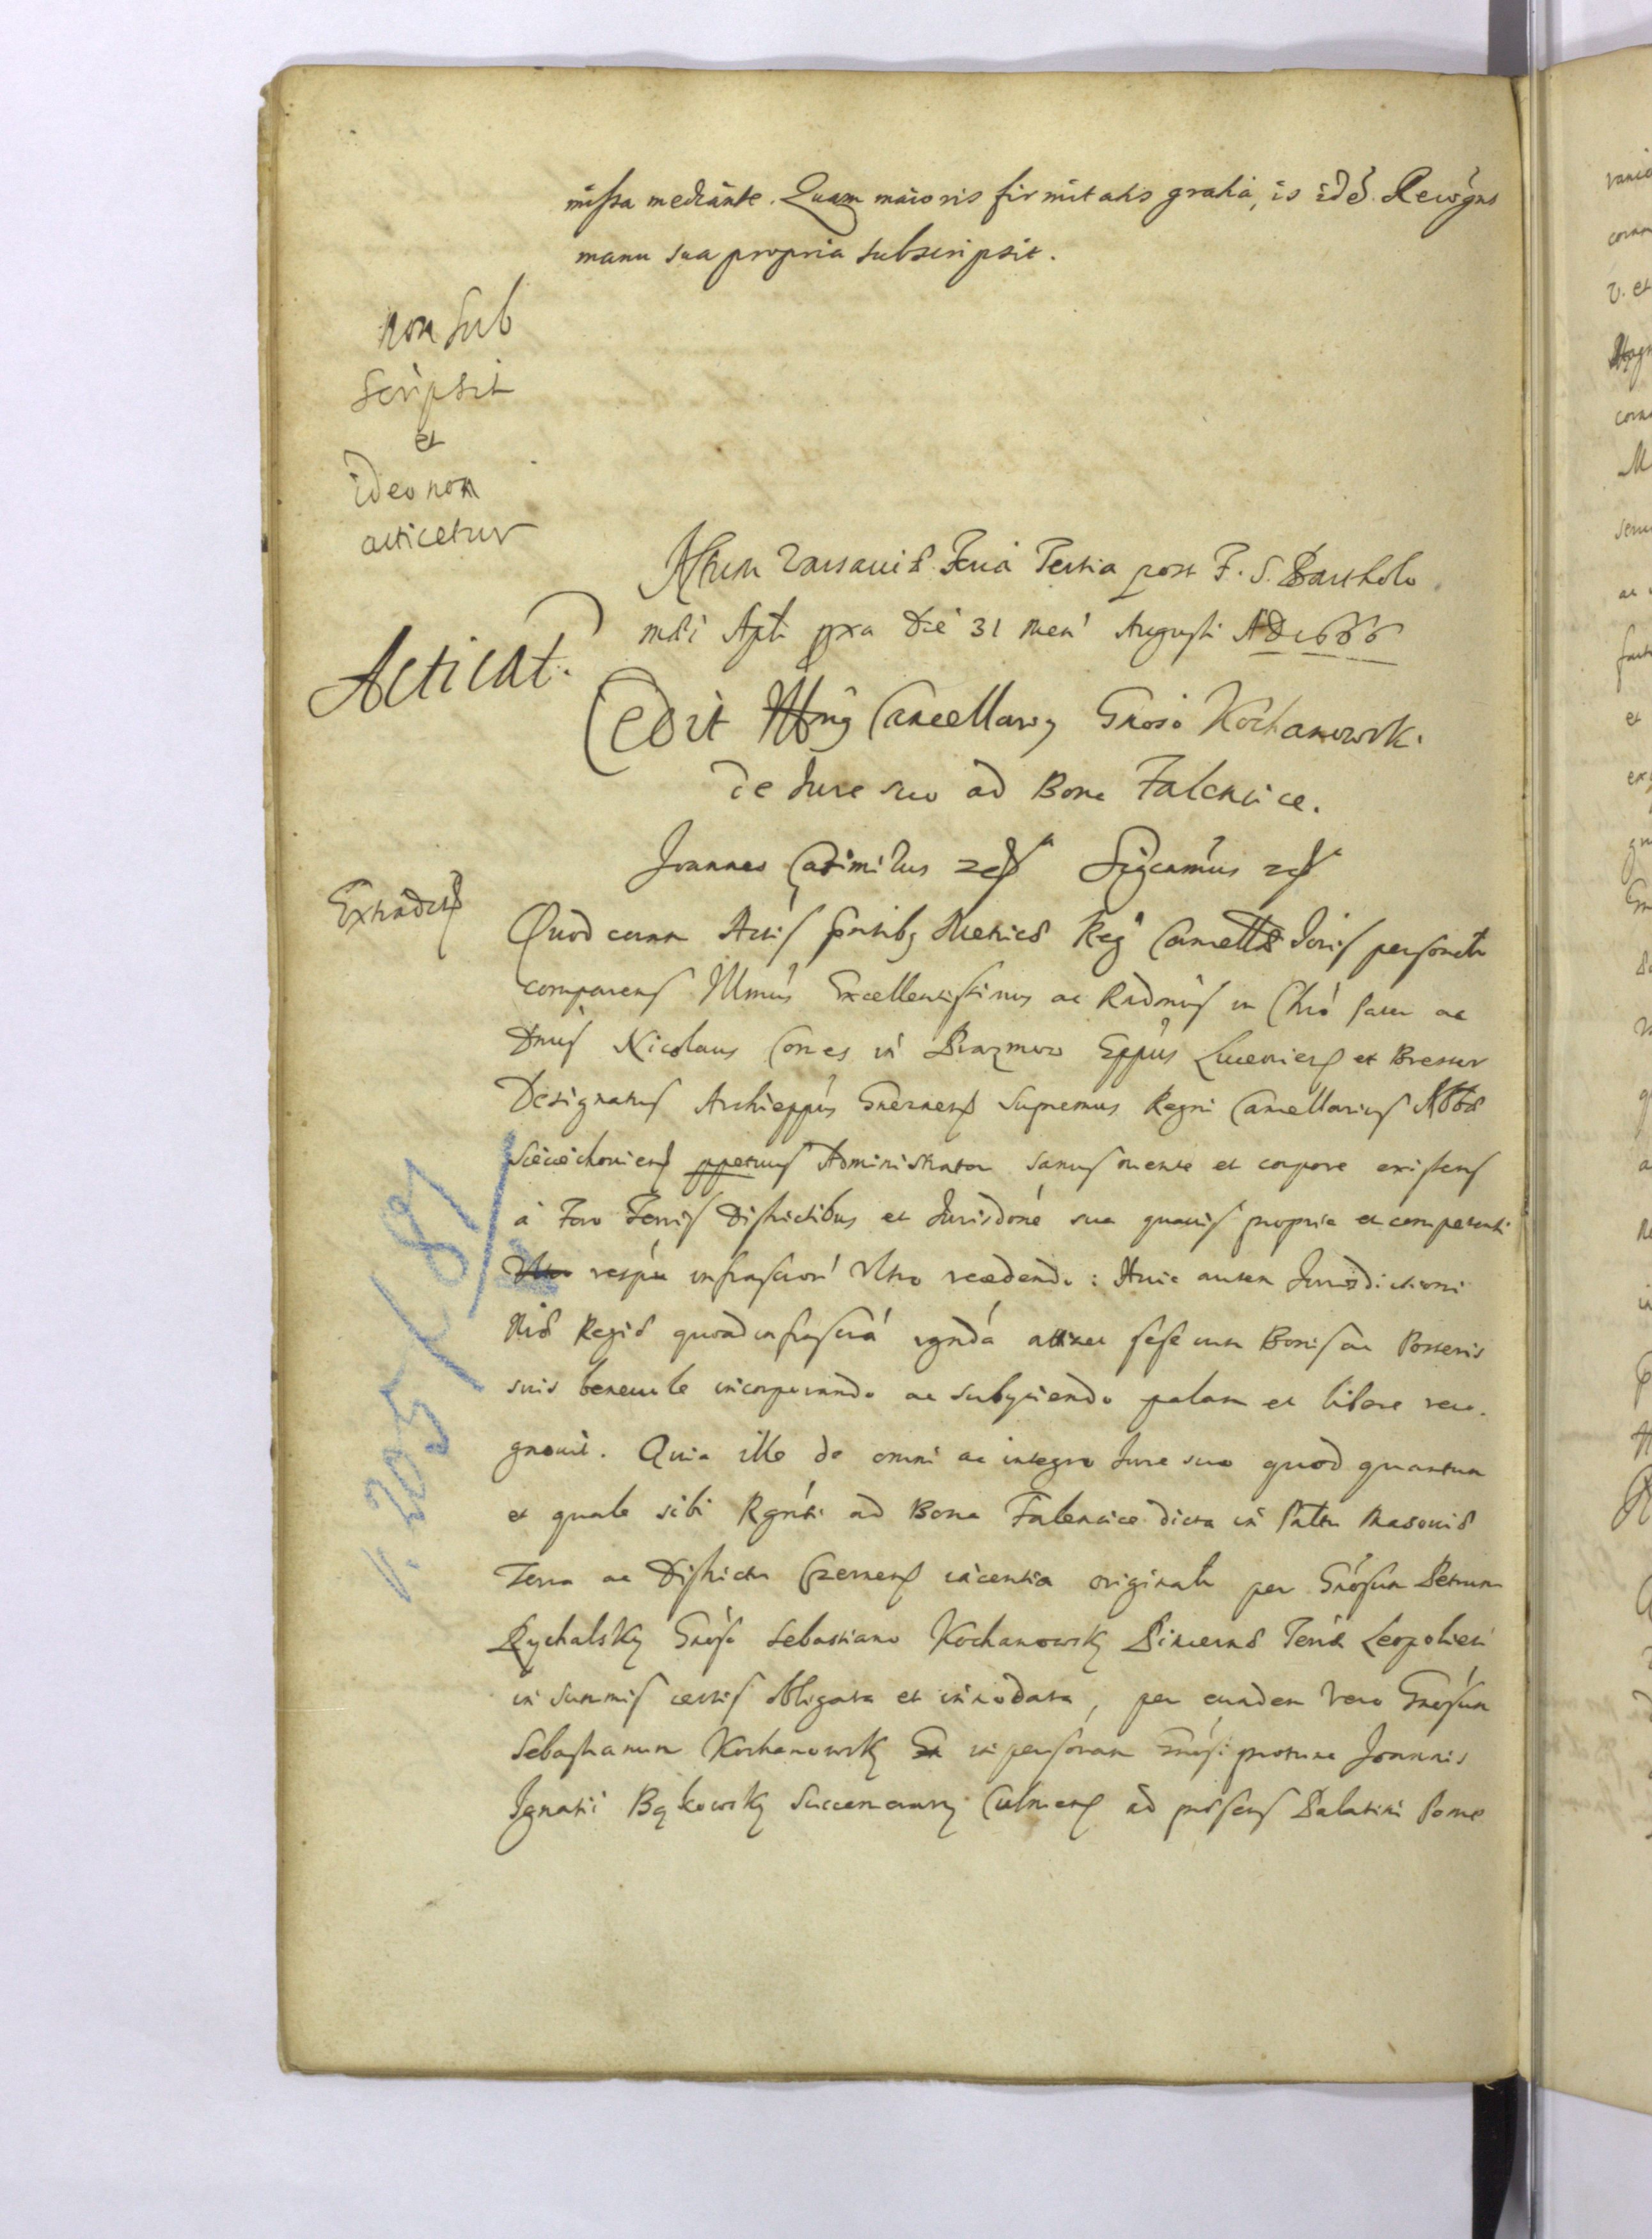 missa mediante. Quam maioris firmitatis gratia, is idē Recogns
manu sua propria subscripsit.
non sub
scripsit
et
ideo non
acticetur
Actum Varsaviae Feria Tertia post F. S. Bartholo
maei Apti pxa die 31 men' Augusti AD 1666
Acticat.
Cedit Cancellarij Gnoso Kochanowsk.
de Jure suo ad Bona Falencice.
Joannes Casimirus Sigcamus
Extradit
Quod coram Actis pntibq Metricae Reg' Cancellae personalr
comparens Illmus Excellentissimus ac Rndmus in Chro Pater ac
Dnus Nicolaus Comes in Prazmow Eppus Luceoriens et Brestен
Designatus Archieppus Gneznens Supremus Regni Cancellarius Abbae
Sieciechoviens ppetuus Administrator sanus mente et corpore existens
à Foro Terris Districtibus et Jurisdone sua quavis propria et competenti
respu infrascrор' Ultro recedendo: Huic autem Jurisdictioni
Regiae quoad infrascra attinet sese cum Bonis ac Posteris
suis benevole incorporando ac subijciendo palam et libere reco.
gnovit. Quia ille de omni ac integro Jure suo quod quantum
et quale sibi Rgnti ad Bona Falencice dicta in Pattu Masoviae
Terra ac Districtu Czernens iacentia originalr per Gnosum Petrum
Rychalsky Gnoso Sebastiano Kochanowsky Pincernae Terrae Leopolien'
in summis certis obligata et inscrodata, per eundem vero Gnosum
Sebastianum Kochanowsky in personam Gnosi protunc Joannis
Ignatii Bąkowsky Succamerarij Culmens ad psens Palatini Pome
V. 205 f 81